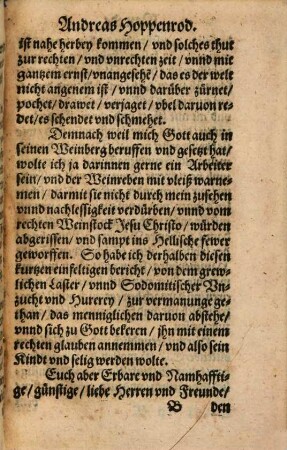 Andreas Hoppenrod.
ist nahe herbey kommen / vnd solches thut
zur rechten / vnd vnrechten zeit / vnnd mit
gantzem ernst / vnangesehē / das es der welt
nicht angenem ist / vnnd darüber zürnet /
pochet / drawet / verjaget / vbel daruon re-
det / es schendet vnd schmehet.
Demnach weil mich Gott auch in
seinen Weinberg beruffen vnd gesetzt hat /
wolte ich ja darinnen gerne ein Arbeiter
sein / vnd der Weinreben mit vleiß warne-
men / darmit sie nicht durch mein zusehen
vnnd nachlessigkeit verdürben / vnnd vom
rechten Weinstock Jesu Christo / würden
abgerissen / vnd sampt ins Hellische fewer
geworffen. So habe ich derhalben diesen
kurtzen einfeltigen bericht / von dem grew-
lichen Laster / vnnd Sodomitischer Vn-
zucht vnd Hurerey / zur vermanunge ge-
than / das menniglichen daruon abstehe /
vnnd sich zu Gott bekeren / jhn mit einem
rechten glauben annemmen / vnd also sein
Kindt vnd selig werden wolte.
Euch aber Erbare vnd Namhaffti-
ge / günstige / liebe Herren vnd Freunde /
B den